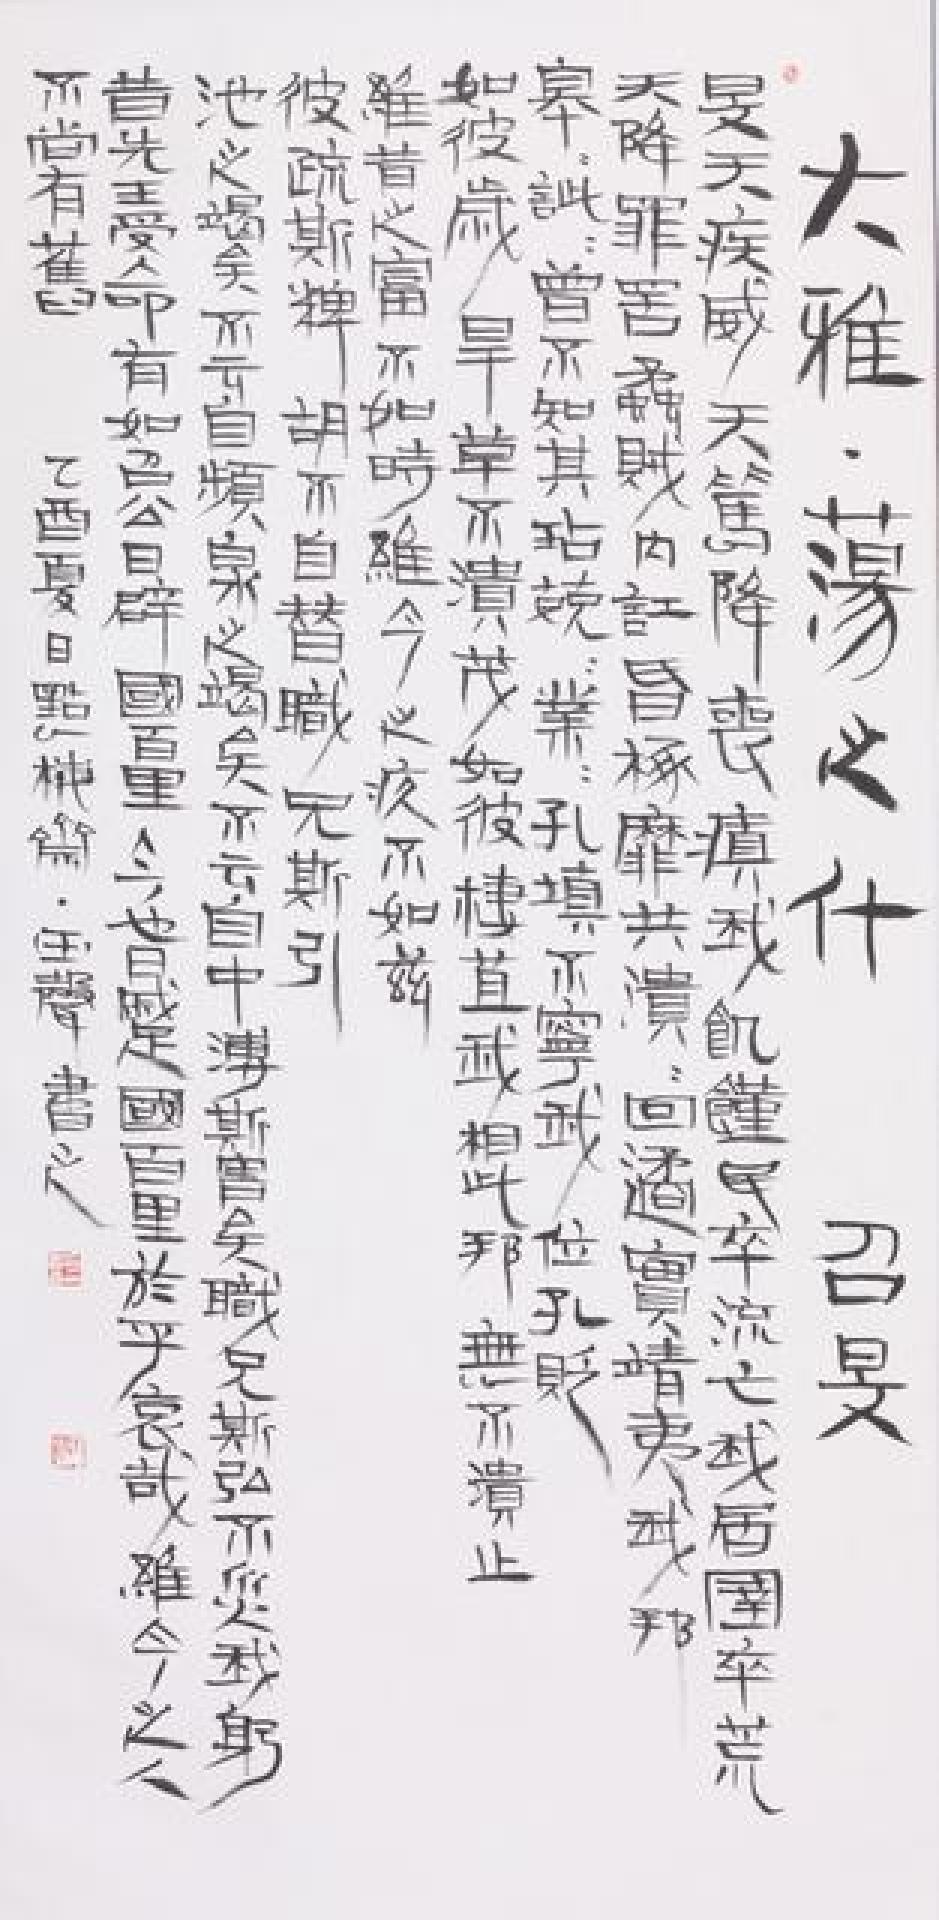 大雅·蕩之什 召旻
旻天疾威天篤降喪瘨我飢饉民卒流亡我居圉卒荒
天降罪罟蟊賊內訌昏椓靡共潰:回遹實靖夷我邦
皋:訿:曾不知其玷兢:業:孔填不寧我位孔貶
如彼歲旱草不潰茂如彼棲苴我相此邦無不潰止
維昔之富不如時維今之疚不如茲
彼疏斯粺胡不自替職兄斯引
池之竭矣不云自頻泉之竭矣不云自中溥斯害矣職兄斯弘不烖我躬
昔先王受命有如召公日辟國百里今也日蹙國百里於乎哀哉維今之人
不尚有舊 乙酉夏日點 · 玉聲書之